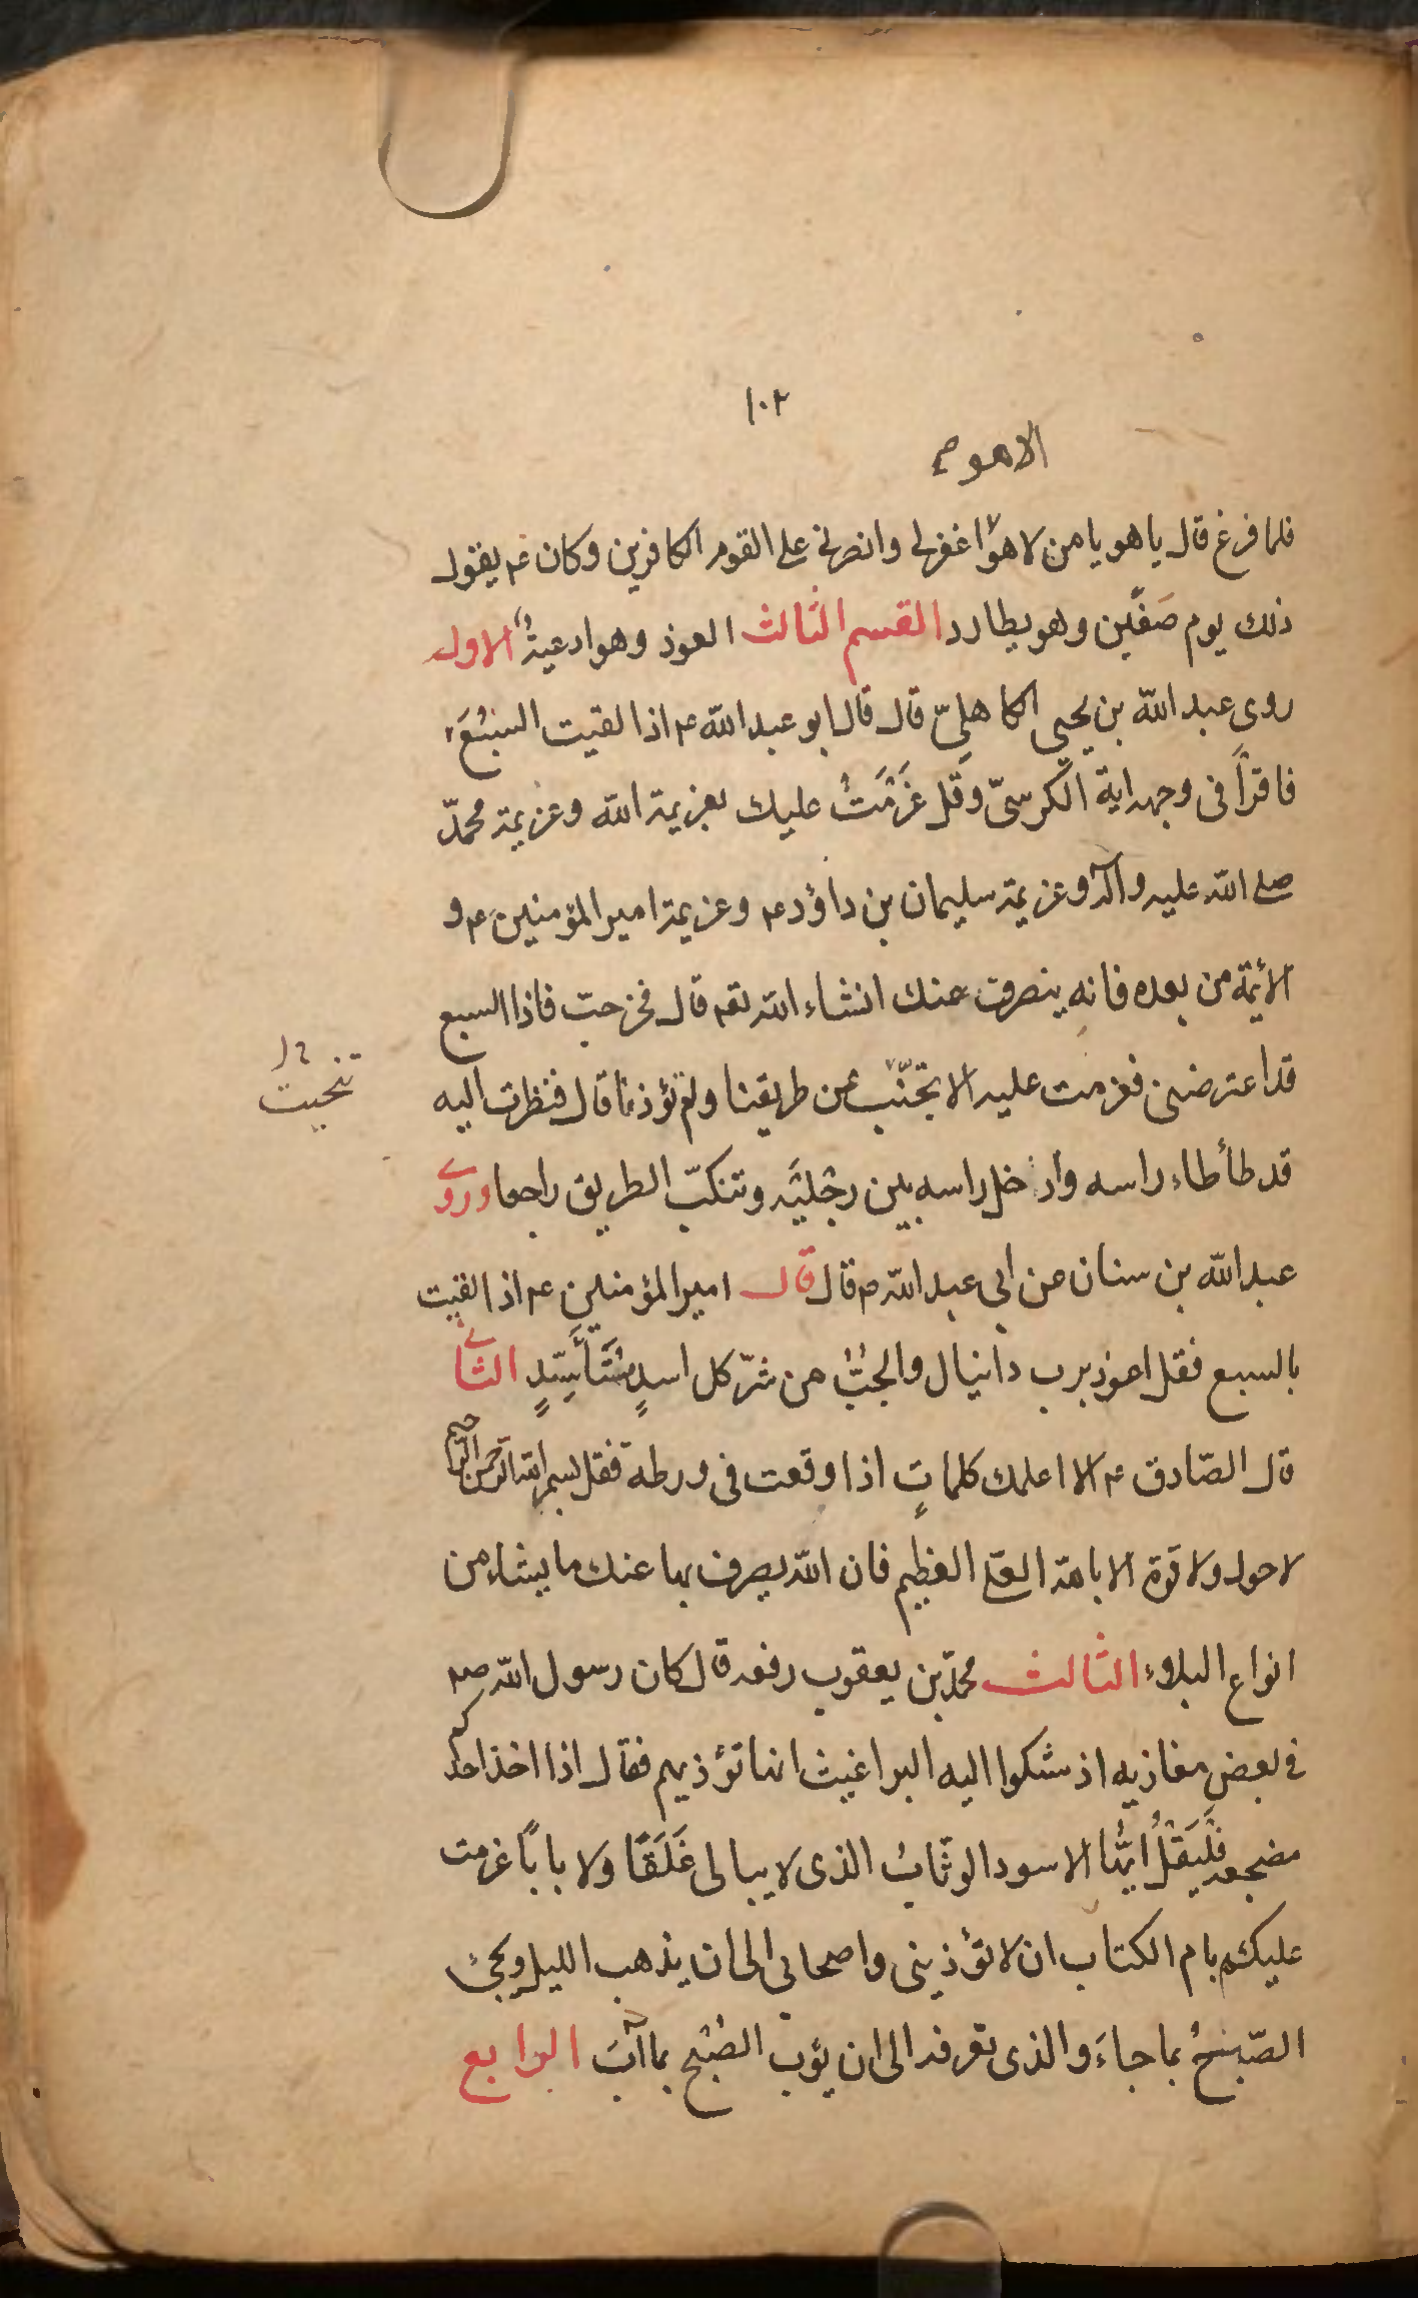 ١٠٢
الا هو
فلما فرغ قال يا هو يا من لا هو اغفر لى وانصرنى على القوم الكافرين وكان ع يقول
ذلك يوم صفّين وهو يطارد القسم الثالث العوذ وهو ادعيةٌ الاول
روى عبد الله بن يحيى الكاهليّ قال قال ابو عبد الله ع اذا لقيت السبُعَ
فاقرأ فى وجهه اية الكرسىّ وقل عَزَمْتُ عليك بعزيمة الله وعزيمة محمدّ
صلى الله عليه وآله وعزيمة سليمان بن داؤد ع وعزيمة امير المؤمنين ع و
الائمة من بعده فانه ينصرف عنك انشاء الله تعم قال فخرجت فاذا السبع
قد اعترضنى فعزمت عليه الا تجنّب عن طريقنا ولم تؤذنا قال فنظرت اليه
تنحيت
قد طأطاء راسه وادخل راسه بين رجْليَه وتنكبّ الطريق راجعا وروى
عبد الله بن سنان عن ابى عبد الله ع قال قال امير المؤمنين ع اذا لقيت
بالسبع فقل اعوذ برب دانيال والجُبّ من شرّ كل اسدٍ مُسْتَأْسِدٍ الثانى
قال الصّادق ع الا اعلمك كلماتٍ اذا وقعت فى ورطة فقل بسم الله الرحمن الرحيم
لا حول ولا قوة الا بالله العلى العظيم فان الله يصرف بها عنك ما يشاء من
انواع البلاء الثالث محمدّ بن يعقوب رفعه قال كان رسول الله صم
فى بعض مغازيه اذ شكوا اليه البراغيث انها تؤذيهم فقال اذا اخذ احدكم
مضجعه فلْيَقُلْ ايّها الاسود الوثّابُ الذى لا يبالى غَلَقًا ولا بابًا عزمت
عليكم بام الكتاب ان لا تؤذينى واصحابى الى ان يذهب الليل ويجئ
الصّبحُ بما جاءَ والذى تعرفه الى ان يؤب الصُبْح بما آبَ الرابع